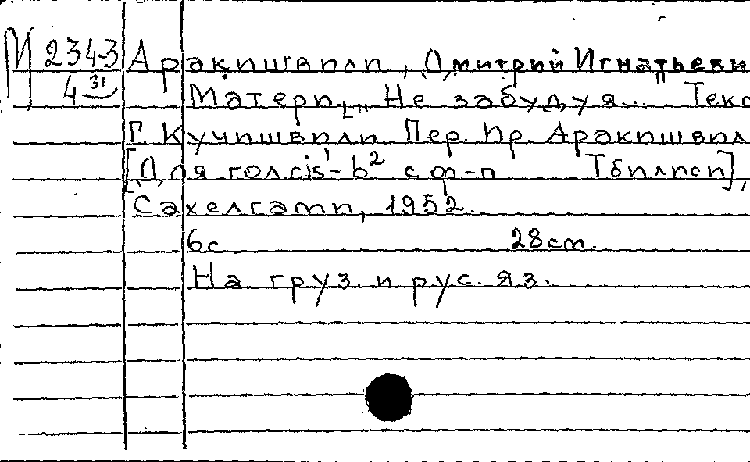 М 234-3 Аракишвили, Дмитрий Игнатьеви
4 31 Матери. „Не забуду я... Текс
Г. Кучишвили. Пер. Др. Аракишвил
[Для гол. cis'-b² с ф-п Тбилиси],
Сахелгами, 1952.
6с 28cm.
На груз. и рус. яз.